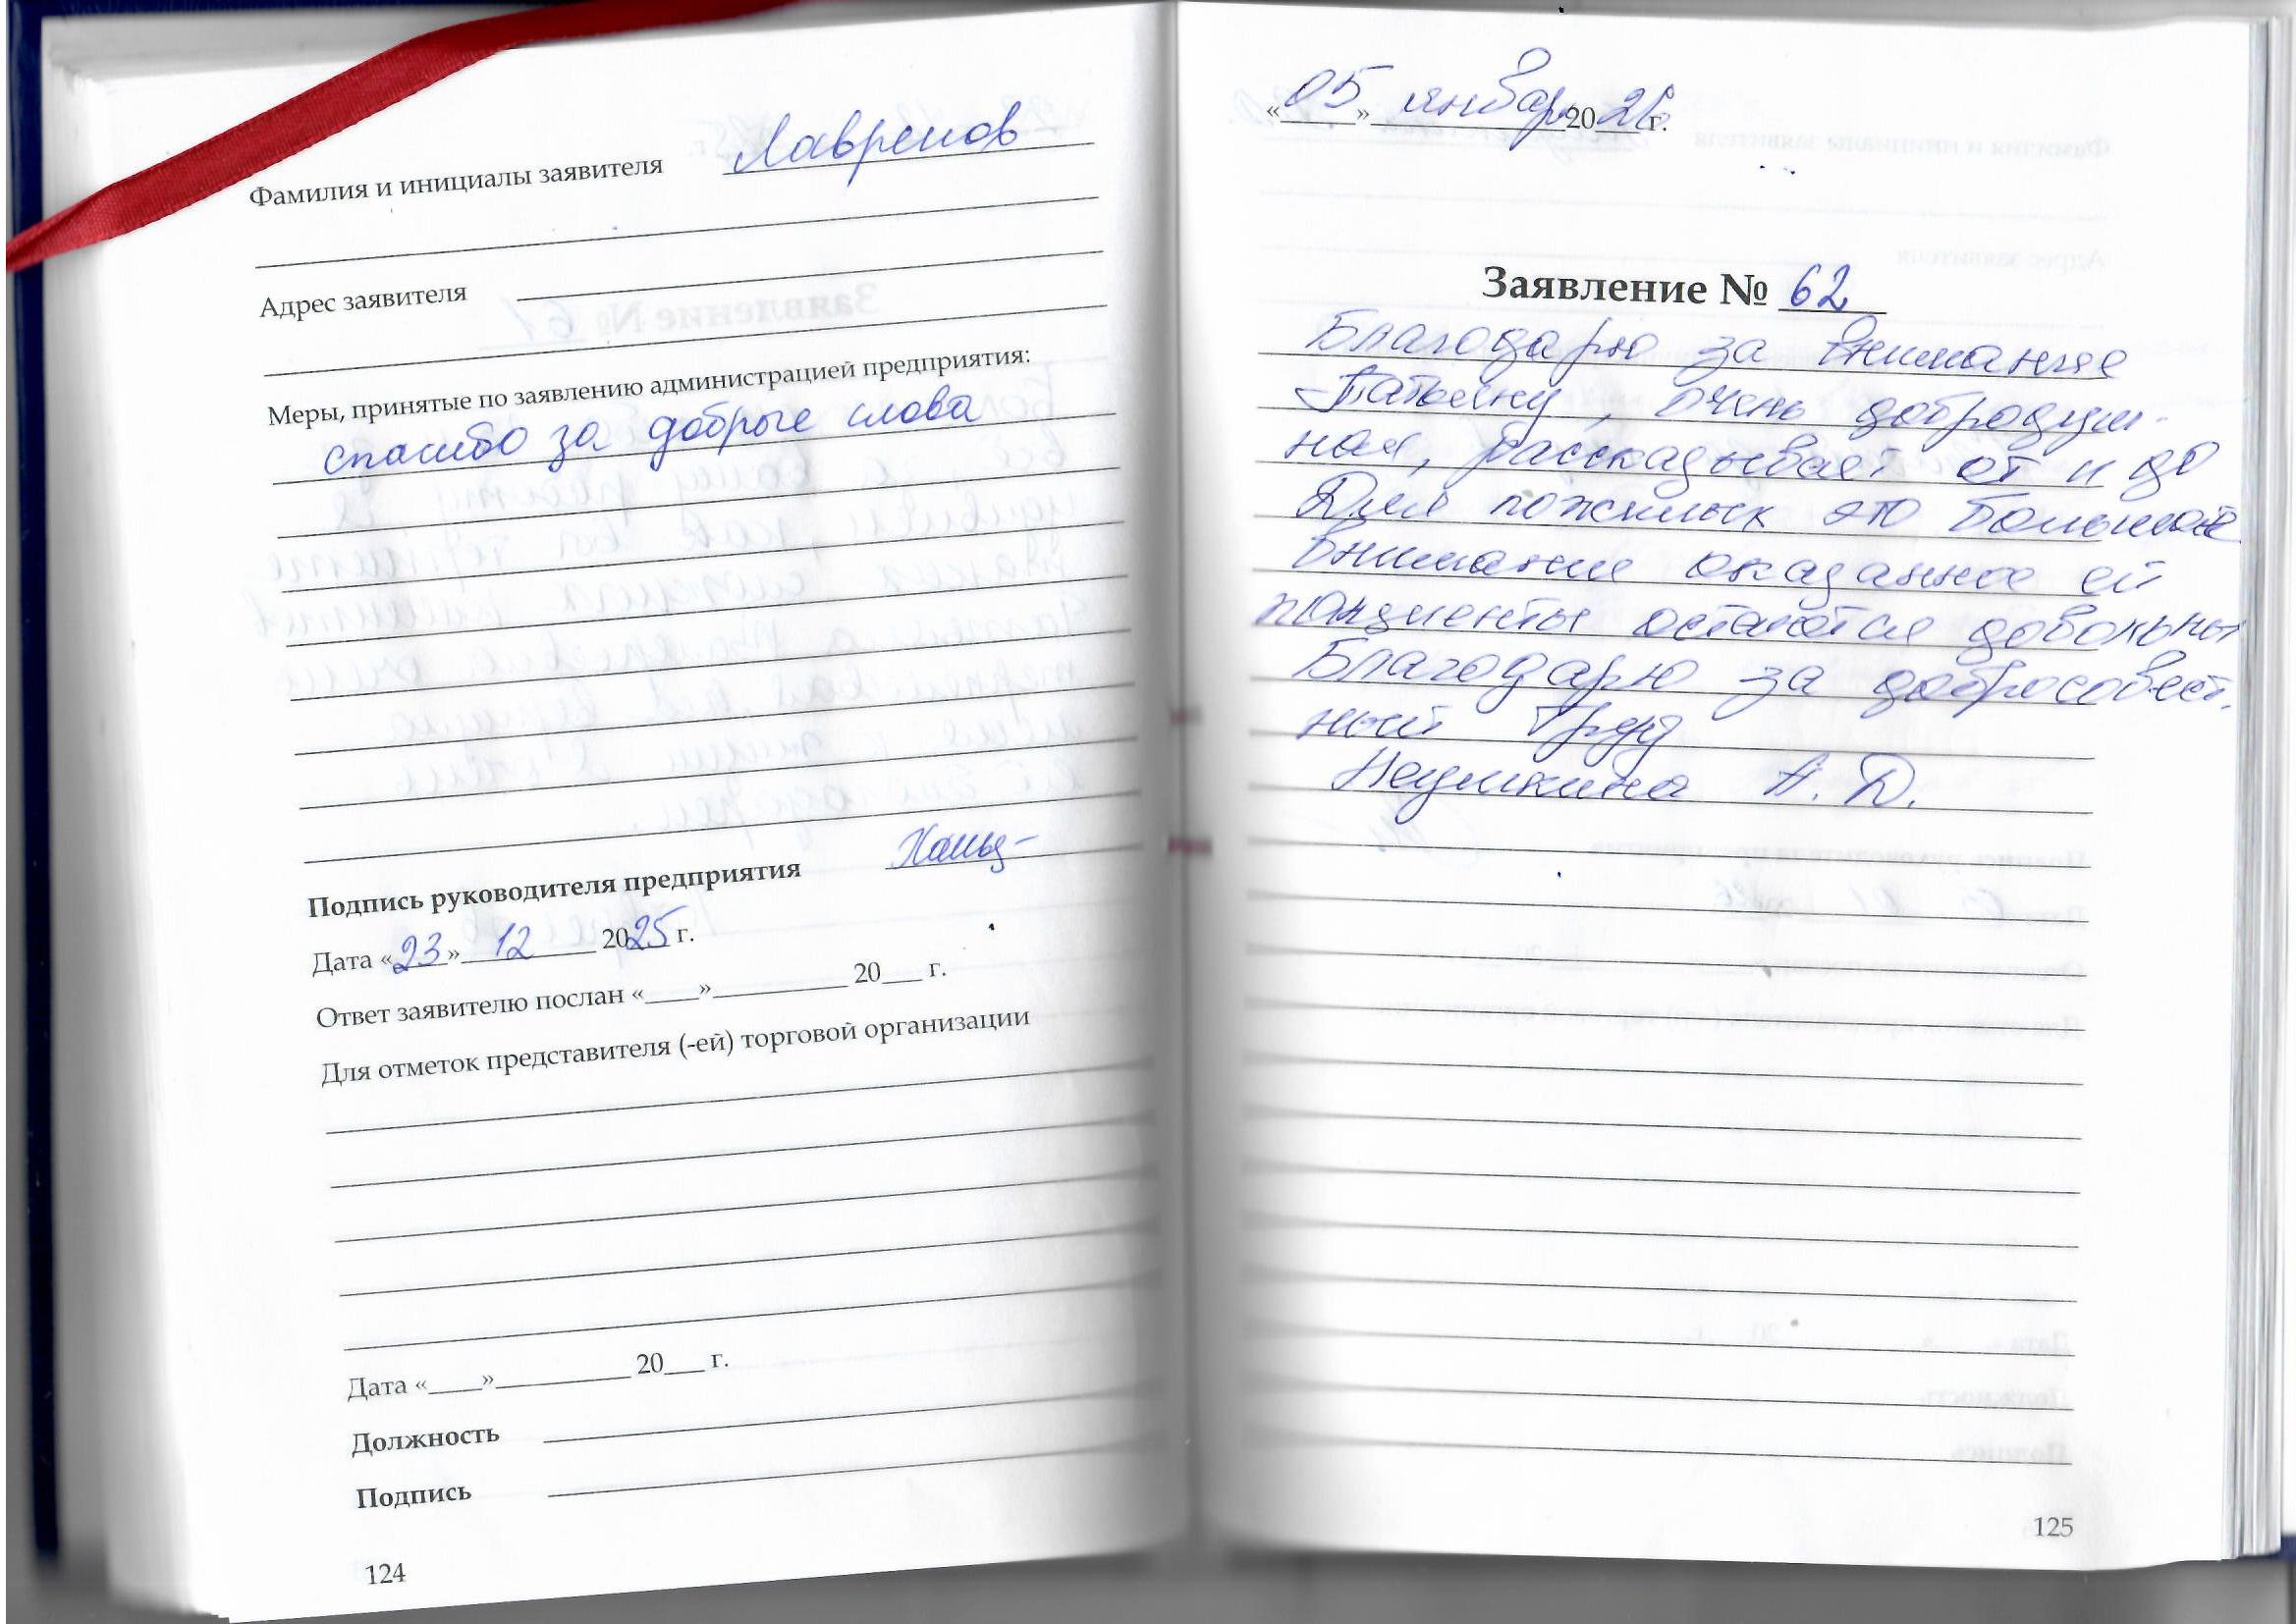 Фамилия и инициалы заявителя Лавренов
Адрес заявителя
Меры, принятые по заявлению администрацией предприятия:
спасибо за добрые слова
Подпись руководителя предприятия
Дата «23» 12 2025 г.
Ответ заявителю послан «____»__________ 20___ г.
Для отметок представителя (-ей) торговой организации
Дата «____»__________ 20___ г.
Должность
Подпись
124
«05» январь 2026 г.
Заявление № 62
Благодарю за внимание
Татьяну, очень добродуш-
ная, рассказывает от и до
Для пожилых это большое
внимание оказанное ей
пациенты остаются довольны
Благодарю за добросовест.
ный труд
А. Д.
125